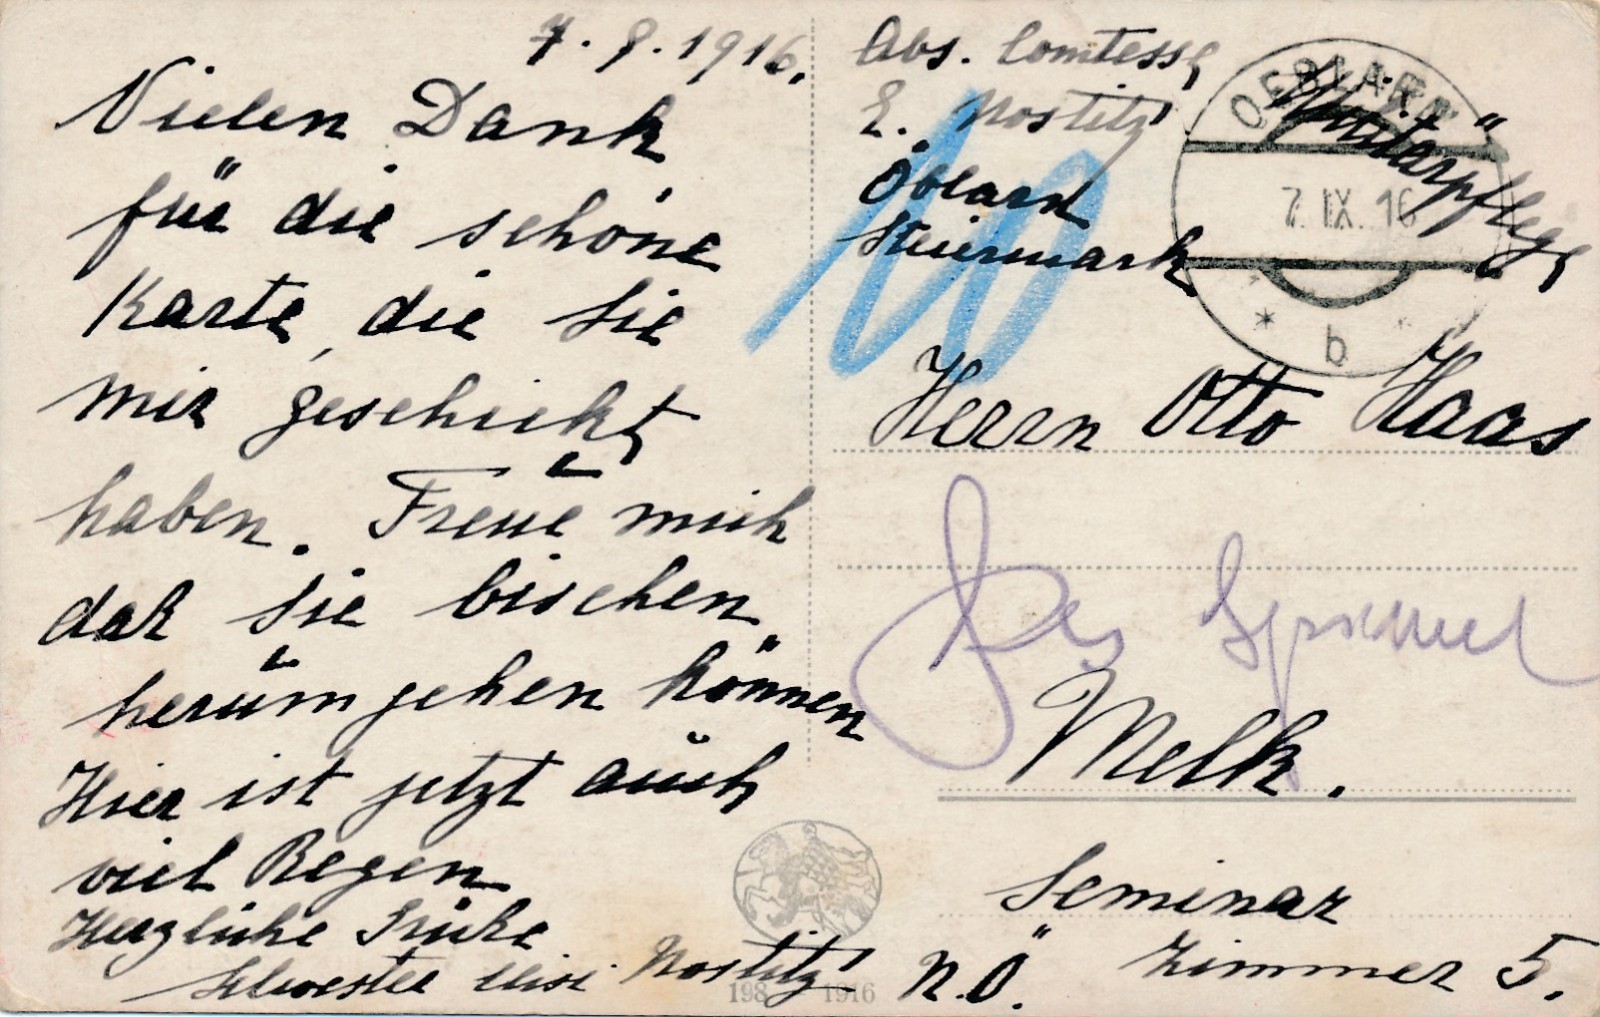 7. 9. 1916.
Vielen Dank
für die schöne
Karte, die Sie
mir geschickt
haben. Freue mich
daß Sie bischen
herum gehen können
Hier ist jetzt auch
viel Regen
Herzliche Grüße
Schwester Nostitz
Abs. Comtesse
E. Nostitz
Öblarn
Steiermark
OEBLARN
7. IX. 16
* b *
10
Herrn Otto Haas
Melk.
Seminar
N.Ö. Zimmer 5.
198 1916